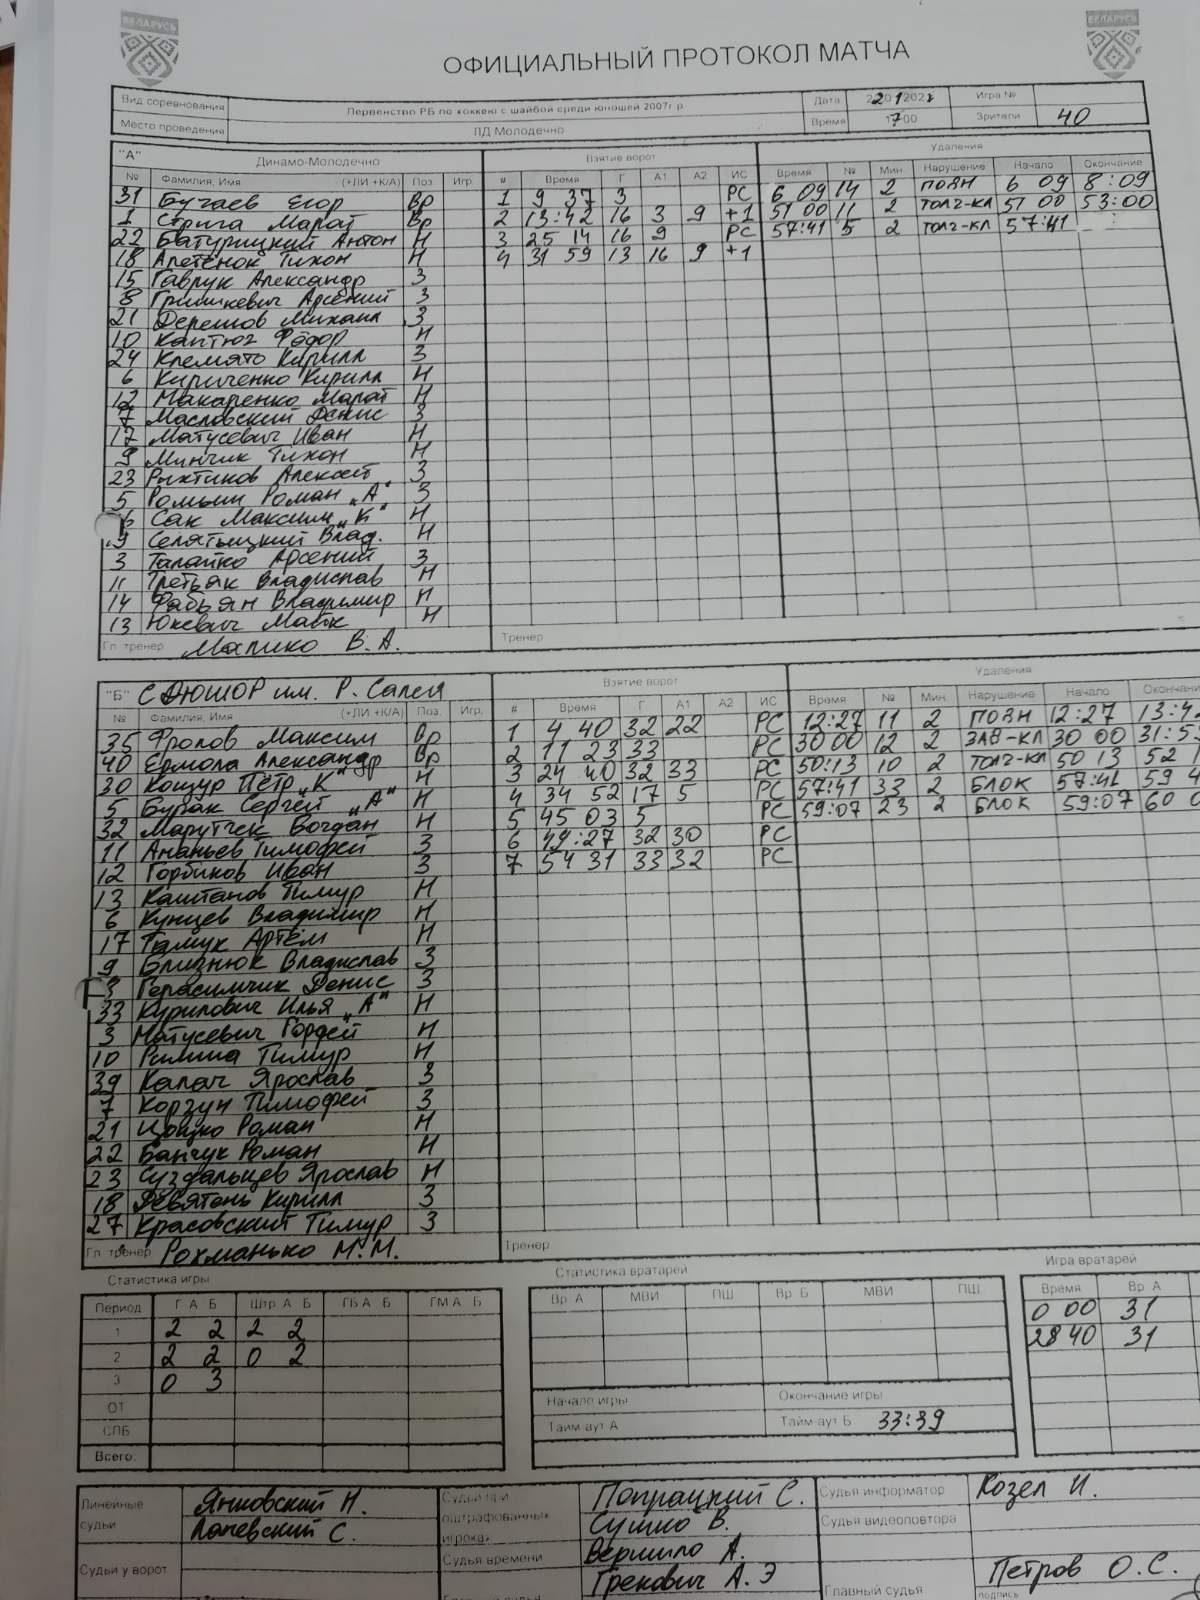 БЕЛАРУСЬ
БЕЛАРУСЬ
ОФИЦИАЛЬНЫЙ ПРОТОКОЛ МАТЧА
Вид соревнования Первенство РБ по хоккею с шайбой среди юношей 2007г.р. Дата Игра №
Место проведения ЛД Молодечно Время 17 00 Зрители 40
"А" Динамо-Молодечно Взятие ворот Удаления
№ Фамилия, Имя (+ЛИ +К/А) Поз. Игр. # Время Г А1 А2 ИС Время № Мин. Нарушение Начало Окончание
31 Бугаев Егор Вр 1 9 37 3 РС 6 09 14 2 ПОДН 6 09 8:09
1 Стрига Марат Вр 2 13:42 16 3 9 +1 51 00 11 2 ТОЛЧ-КЛ 51 00 53:00
22 Батурицкий Антон Н 3 25 14 16 9 РС 57:41 5 2 ТОЛЧ-КЛ 57:41
18 Апетёнок Тихон Н 4 31 59 13 16 9 +1
15 Гаврук Александр З
8 Гришкевич Арсений З
21 Дерешов Михаил З
10 Каптюг Фёдор Н
24 Клемято Кирилл З
6 Кириченко Кирилл Н
12 Макаренко Марат Н
7 Масловский Денис З
17 Матусевич Иван Н
9 Минчик Тихон Н
23 Рыхтиков Алексей З
5 Ромыш Роман „А" З
6 Сак Максим „К" Н
9 Селятыцкий Влад. Н
3 Талайко Арсений З
11 Третьяк Владислав Н
14 Фабьян Владимир Н
13 Юкевич Майк Н
Гл. тренер Малико В.А. Тренер
"Б" СДЮШОР им. Р. Салея Взятие ворот Удаления
№ Фамилия, Имя (+ЛИ +К/А) Поз. Игр. # Время Г А1 А2 ИС Время № Мин. Нарушение Начало
35 Фролов Максим Вр 1 4 40 32 22 РС 12:27 11 2 ПОДН 12:27 13:42
40 Ермола Александр Вр 2 11 23 33 РС 30 00 12 2 ЗАД-КЛ 30 00 31:59
30 Кощур Пётр „К" Н 3 24 40 32 33 РС 50:13 10 2 ТОЛЧ-КЛ 50 13 52
5 Бурак Сергей „А" Н 4 34 52 17 5 РС 57:41 33 2 БЛОК 57:41 59
32 Марутчек Богдан Н 5 45 03 5 РС 59:07 23 2 БЛОК 59:07 60
11 Ананьев Тимофей З 6 49:27 32 30 РС
12 Горбиков Иван З 7 54 31 33 32 РС
13 Каштанов Тимур Н
6 Кунцев Владимир Н
17 Тамук Артём Н
9 Близнюк Владислав З
Герасимчик Денис З
33 Курилович Илья „А" Н
3 Матусевич Гордей Н
10 Рилиша Тимур Н
39 Калач Ярослав З
7 Корзун Тимофей З
21 Цошко Роман Н
22 Банчук Роман Н
23 Суздальцев Ярослав Н
18 Девятень Кирилл З
27 Красовский Тимур З
Гл. тренер Рохманько М.М. Тренер
Статистика игры Статистика вратарей Игра вратарей
Период Г А Б Штр А Б ГБ А Б ГМ А Б Вр. А МВИ ПШ Вр. Б МВИ ПШ Время Вр. А
1 2 2 2 2 0 00 31
2 2 2 0 2 28 40 31
3 0 3
ОТ Начало игры Окончание игры
СПБ Тайм-аут А Тайм-аут Б 33:39
Всего:
Линейные судьи Янковский Н. Лапевский С.
Судьи при оштрафованных игроках Попрацкий С. Сушко В.
Судья информатор Козел И.
Судья видеоповтора
Судьи у ворот
Судья времени Вершило А.
Грекович А.Э
Главный судья Петров О.С.
подпись